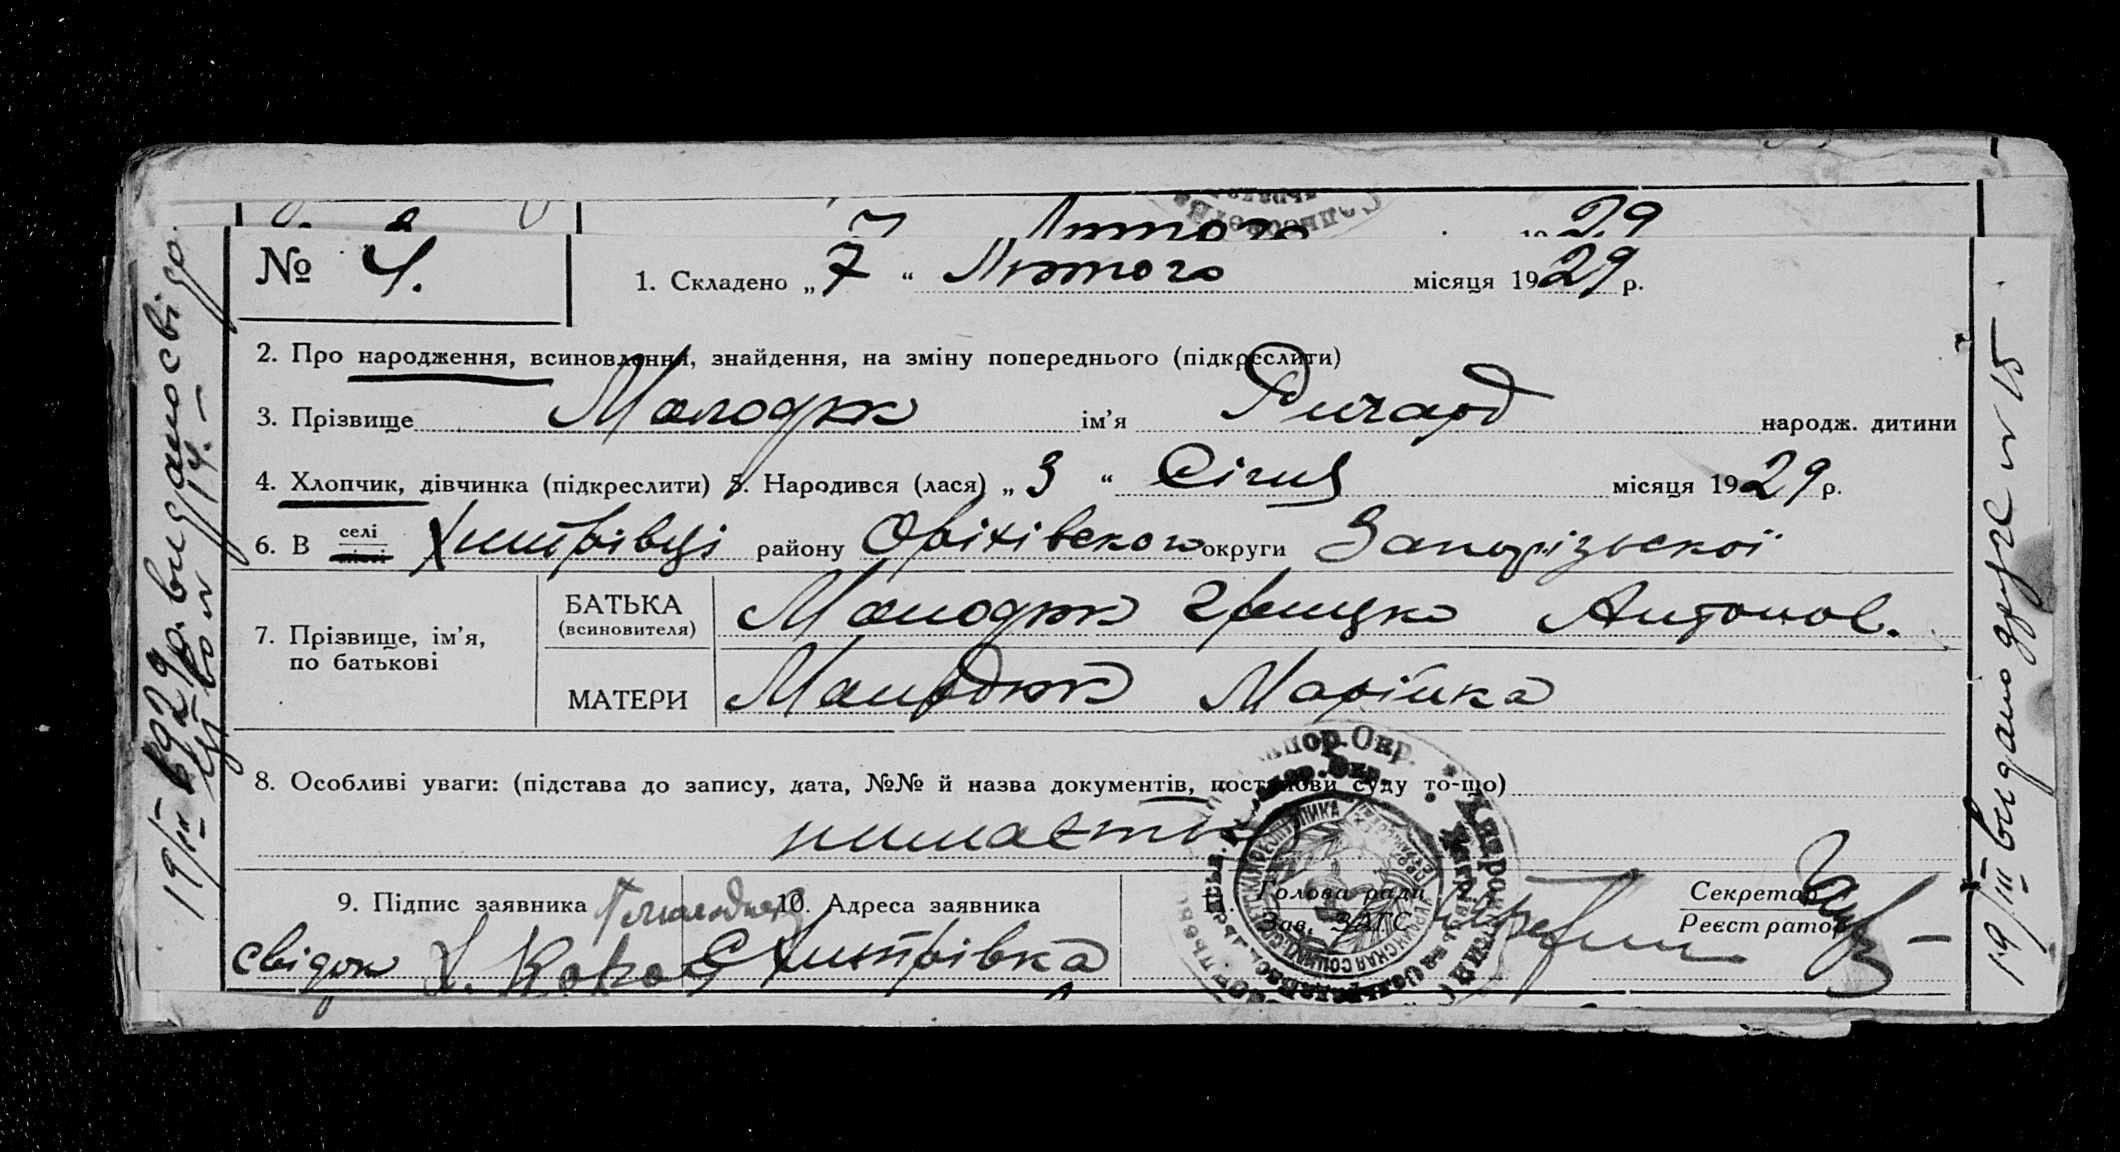 7 Лютого 1929
№ 4.
1. Складено „7“ Лютого місяця 1929 р.
2. Про народження, всиновлення, знайдення, на зміну попереднього (підкреслити)
3. Прізвище Молодюк ім’я Ричард народж. дитини
4. Хлопчик, дівчинка (підкреслити) 5. Народився (лася) „3“ Січня місяця 1929 р.
6. В селі міті Хитрівці району Оріхівського округи Запорізської
7. Прізвище, ім’я, по батькові
БАТЬКА (всиновителя) Молодюк Грицко Антонов.
МАТЕРИ Молодюк Марійка
8. Особливі уваги: (підстава до запису, дата, №№ й назва документів, постанови суду то-що)
9. Підпис заявника Г Молодюк
свідок
10. Адреса заявника
С Хитрівка
11. Голова ради
Зав. ЗАГС
Секретар
Реєстратор
19/III 1929 р. видано свідо.
19/III видано друге № 15.